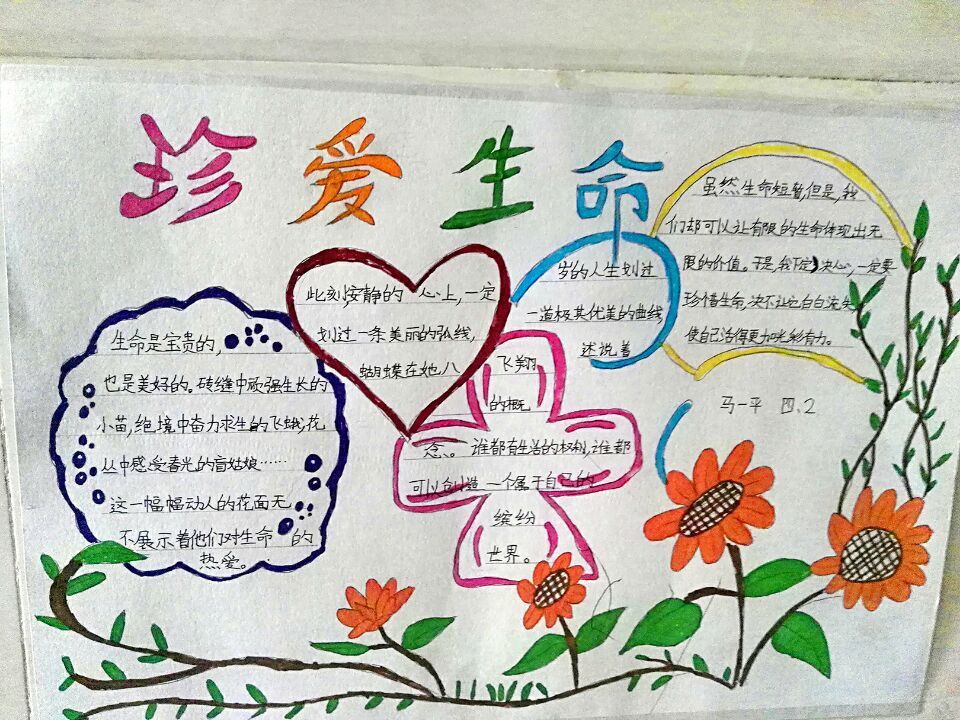 珍爱生命
生命是宝贵的,
也是美好的。砖缝中顽强生长的
小苗,绝境中奋力求生的飞蛾,花
丛中感受春光的盲姑娘……
这一幅幅动人的花面无
不展示着他们对生命的
热爱。
此刻,安静的心上,一定
划过一条美丽的弘线,
蝴蝶在她八
岁的人生划过
一道极其优美的曲线
述说着
飞翔
的概
念。谁都有生活的权利,谁都
可以创造一个属于自己的
缤纷
世界。
虽然生命短暂,但是,我
们却可以让有限的生命体现出无
限的价值。于是,我下定决心,一定要
珍惜生命,决不让它白白流失
使自己活得更加光彩有力。
马一平 四.2